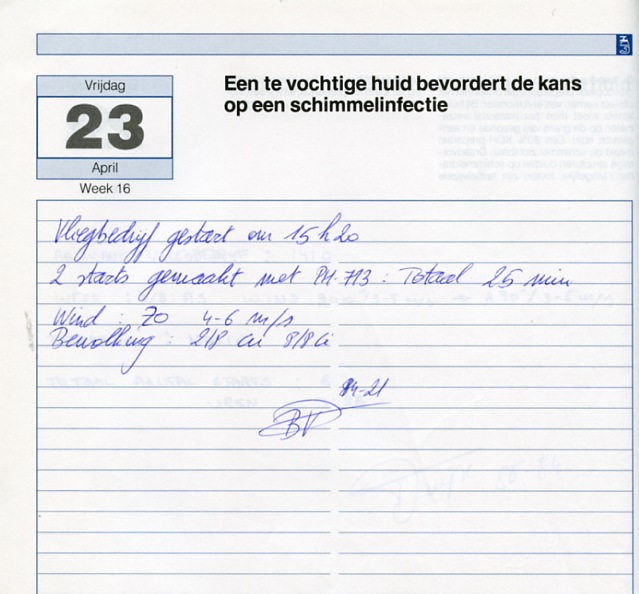 Vrijdag
23
April
Week 16
Een te vochtige huid bevordert de kans
op een schimmelinfectie
Vliegbedrijf gestart om 15 h 20
2 starts gemaakt met PH-713 : Totaal 25 min
Wind : ZO 4-6 m/s
Bewolking : 2/8 cu 8/8 ci
84-21
BV